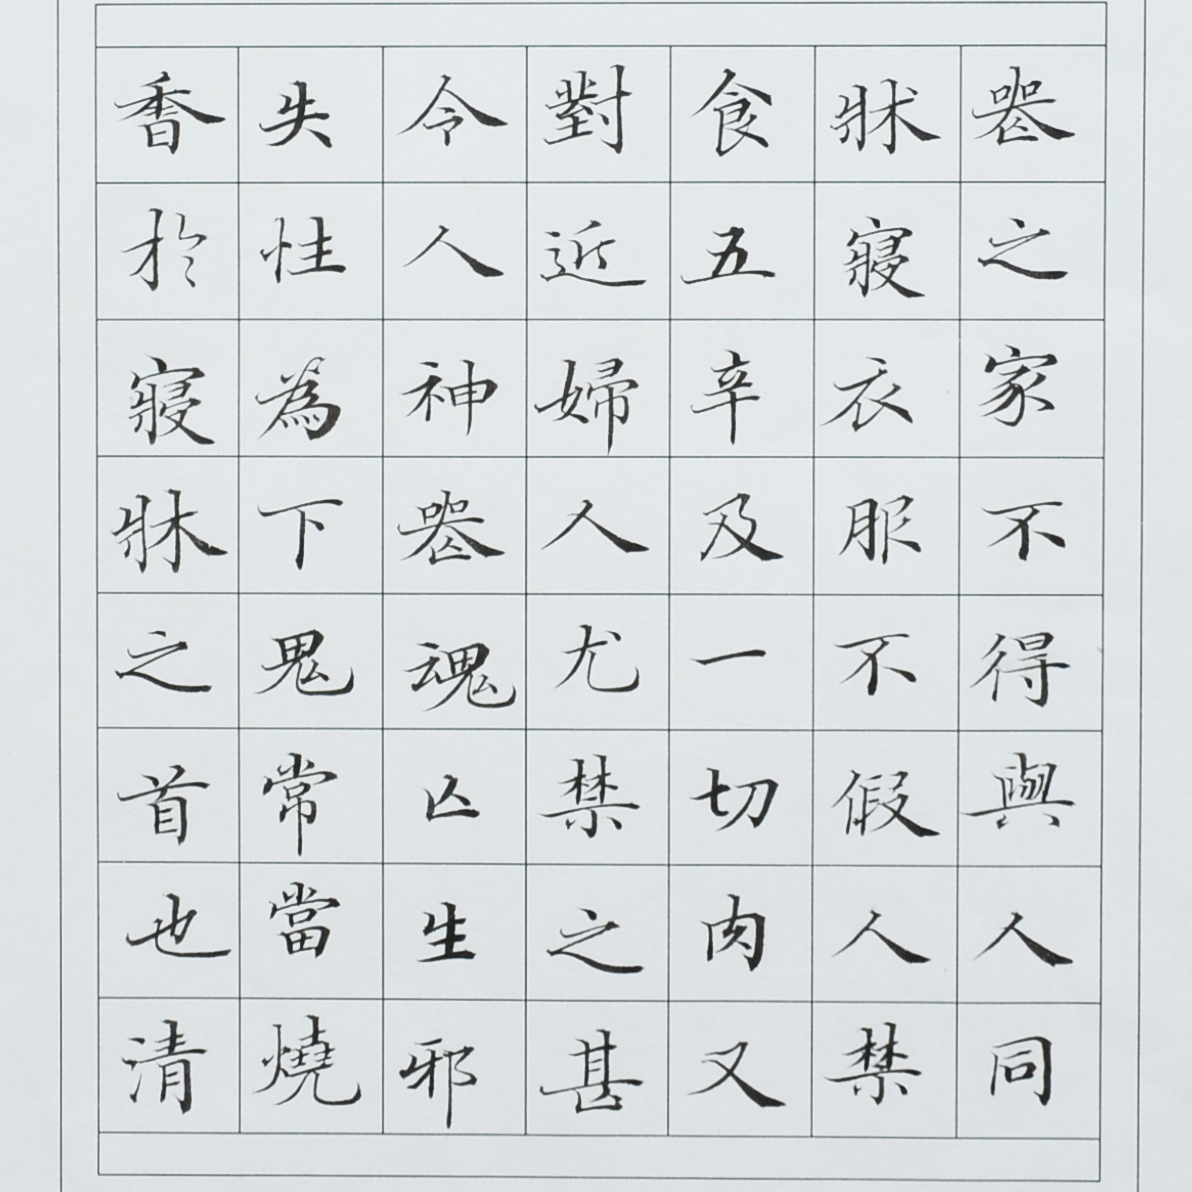 喪之家不得與人同
牀寢衣服不假人禁
食五辛及一切肉又
對近婦人尤禁之甚
令人神喪魂亡生邪
失性為下鬼常當燒
香於寢牀之首也清